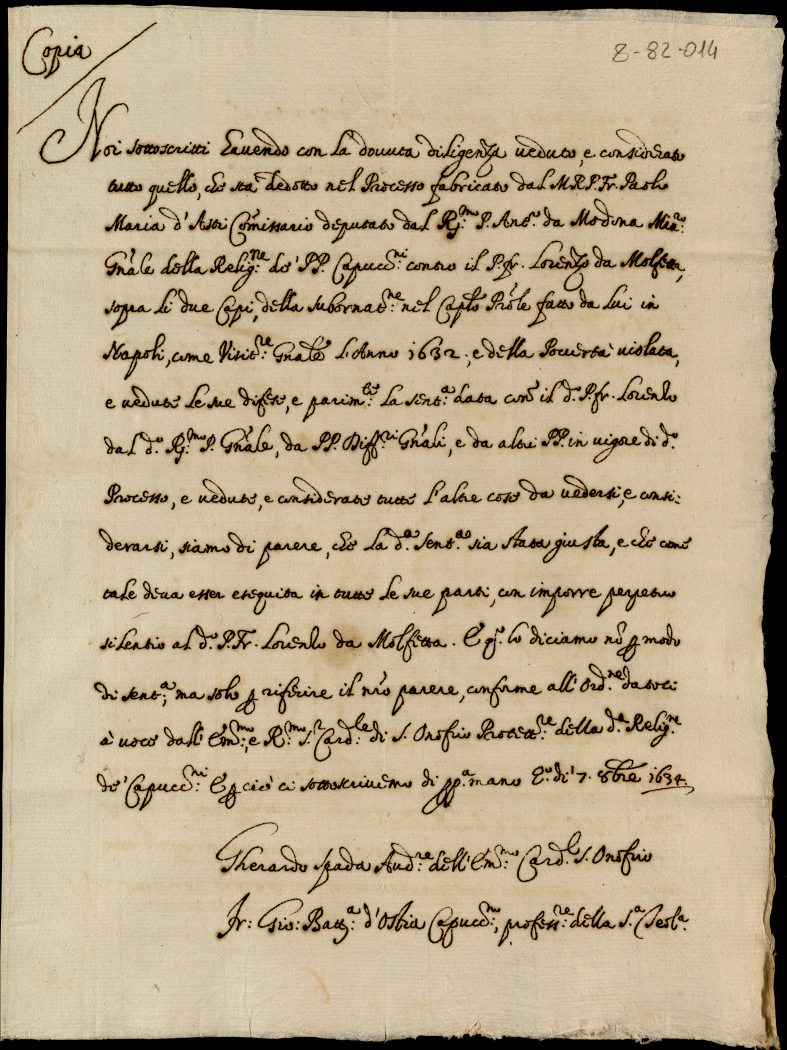 Copia
8-82-014
Noi sottoscritti havendo con la dovuta diligenza veduto, e considerato
tutto quello, che sta dedotto nel Processo fabricato dal M.R.P. Fr. Paolo
Maria d'Asti Com̃issario deputato dal R.mo P. Ant.o da Modona Min.ro
Gñale della Relig.ne de' PP. Capucc.ni contro il P. fr. Lorenzo da Molfetta,
sopra li due Capi, della subornat.ne nel Caplo Prõle fatto da lui in
Napoli, come Visit.re Gñale l'Anno 1632. e della Povertà violata,
e vedute le sue difese, e parim.te la sent.a data conõ il d.o P. fr. Lorenzo
dal d.o R.mo P. Gñale, da PP. Diff.ri Gñali, e da altri PP. in vigore di d.o
Processo, e vedute, e considerate tutte l'altre cose da vedersi, e consi:
derarsi, siamo di parere, che la d.a sent.a sia stata giusta, e che come
tale deva esser eseguita in tutte le sue parti, con imporre perpetuo
silentio al d.o P. Fr. Lorenzo da Molfetta. E q.o lo diciamo nõ ꝑ modo
di sent.a, ma solo ꝑ riferire il nr̃o parere, conforme all'Ord.ne datoci
à voce dall'Em.mo, e R.mo S.r Card.le di S. Onofrio Protett.re della d.a Relig.ne
de' Capucc.ni E ꝑ ciò ci sottoscrivemo di ꝓp.a mano q.o dì 7. 8bre 1634.
Gherardo Spada Aud.re dell'Em.mo Card.l S. Onofrio
Fr: Gio: Batt.a d'Ostia Capucc.no, profess.re della S.a Teol.a